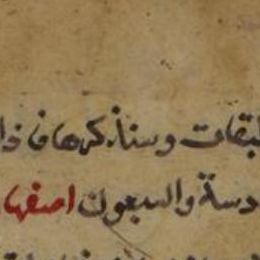 لبقات وسنذكرها في ذا
دسة والسبعون اصفها